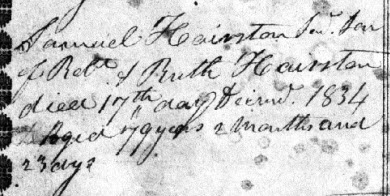 Samuel Hairston Snr. Son
of Robt. & Ruth Hairston
died 17th day Decmr. 1834
Aged 79 years 2 months and
23 days